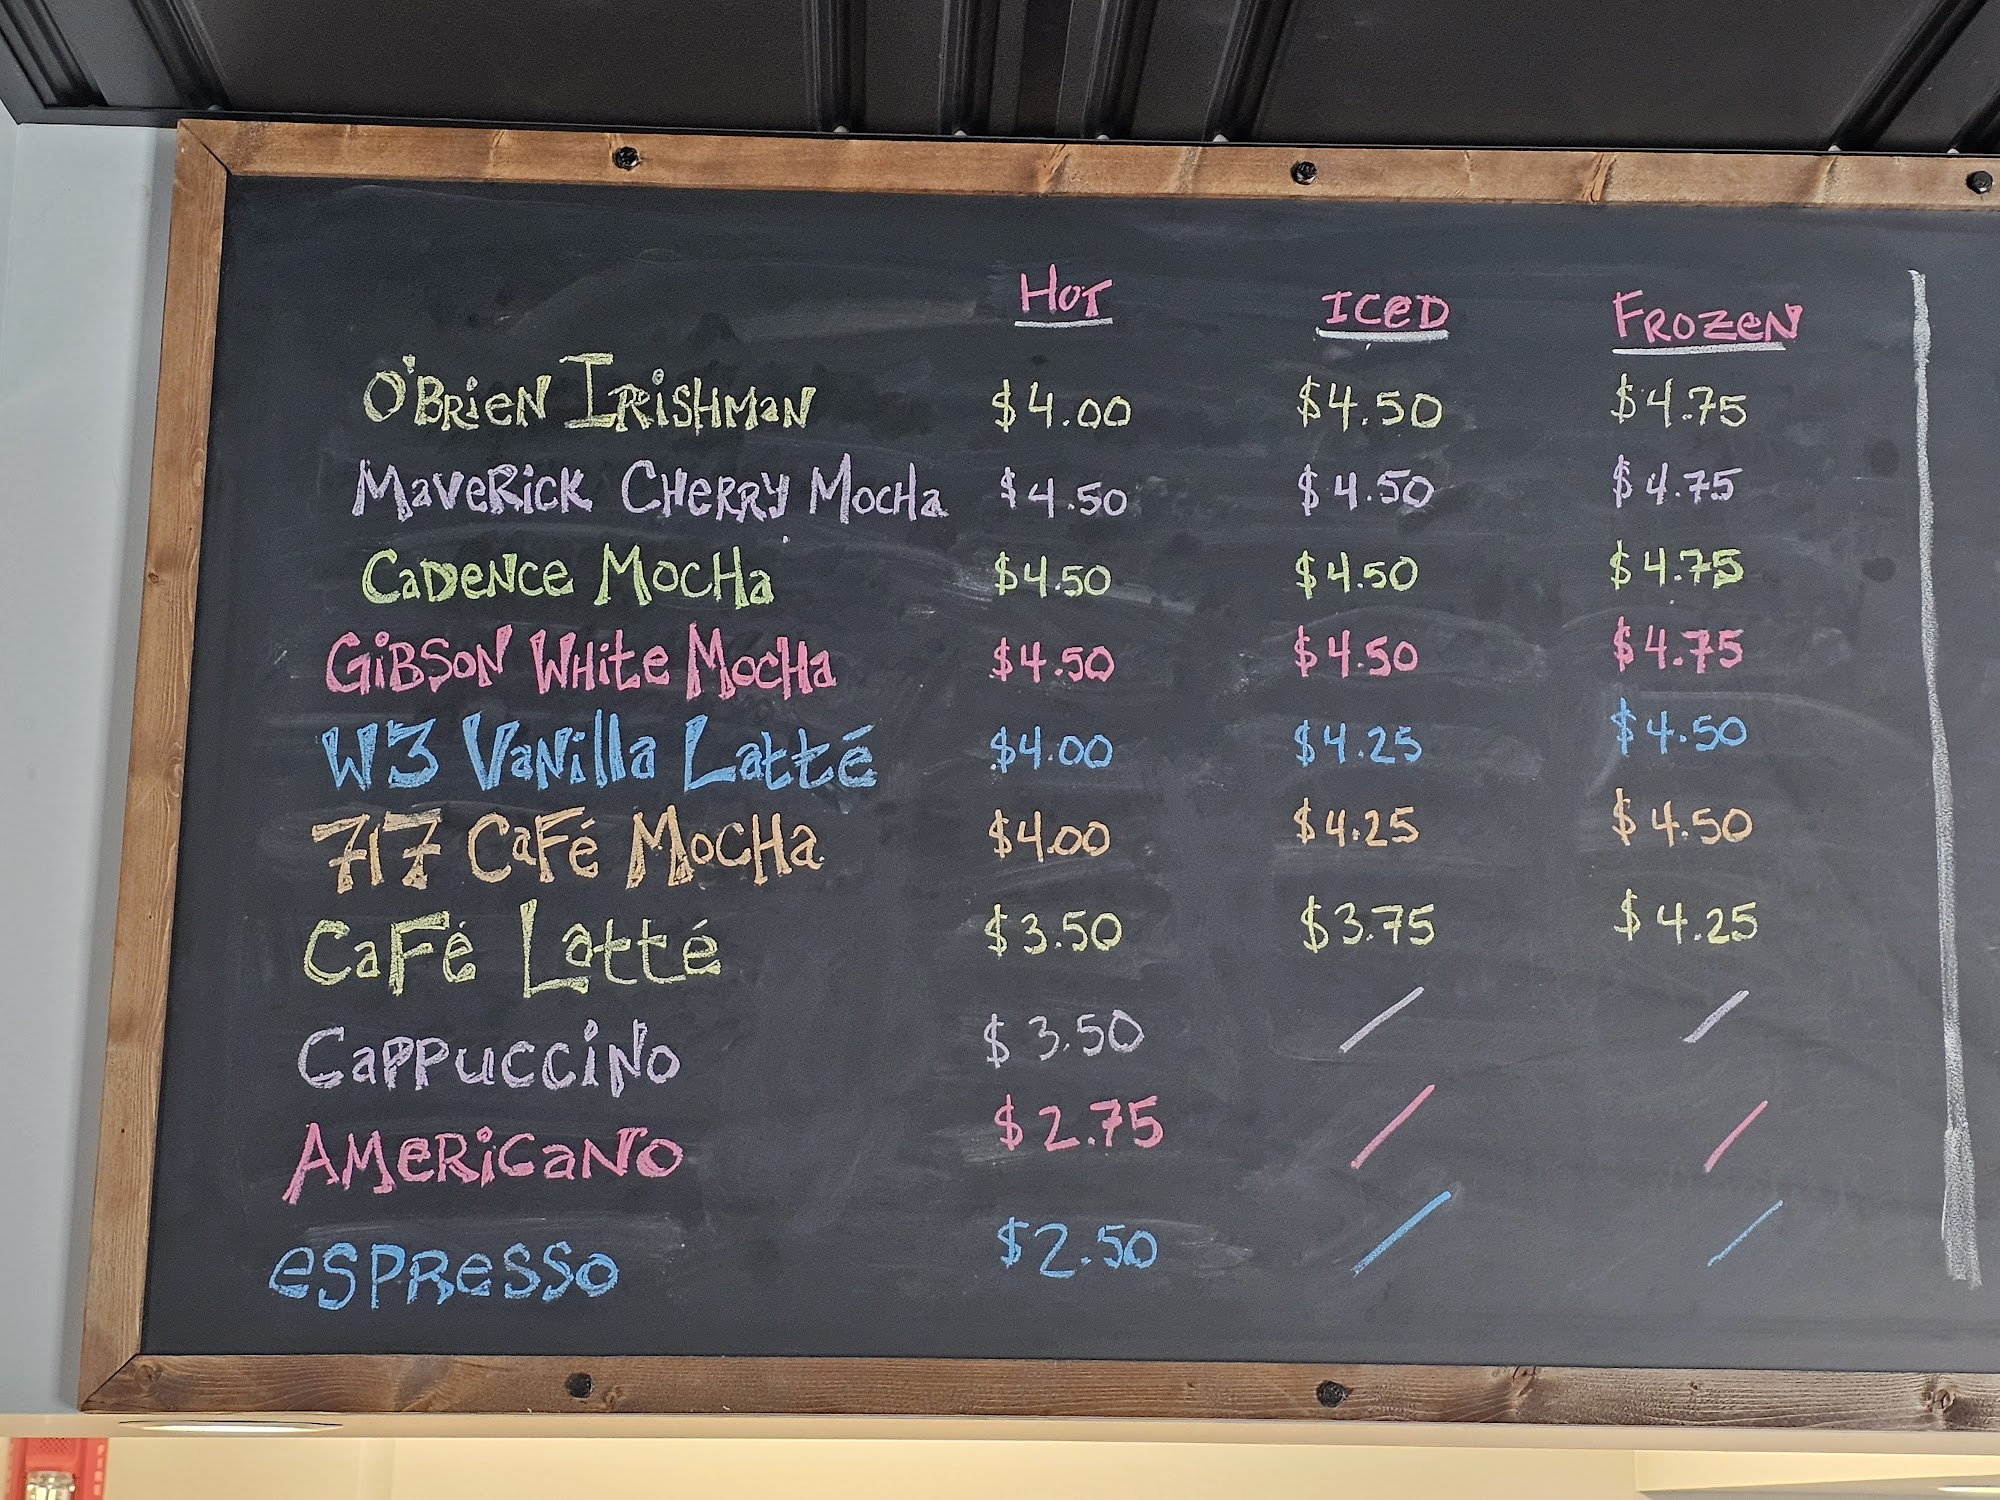 Hot Iced Frozen
O'Brien Irishman $4.00 $4.50 $4.75
Maverick Cherry Mocha $4.50 $4.50 $4.75
Cadence Mocha $4.50 $4.50 $4.75
Gibson White Mocha $4.50 $4.50 $4.75
W3 Vanilla Latté $4.00 $4.25 $4.50
717 Café Mocha $4.00 $4.25 $4.50
Café Latté $3.50 $3.75 $4.25
Cappuccino $3.50 / /
Americano $2.75 / /
espresso $2.50 / /